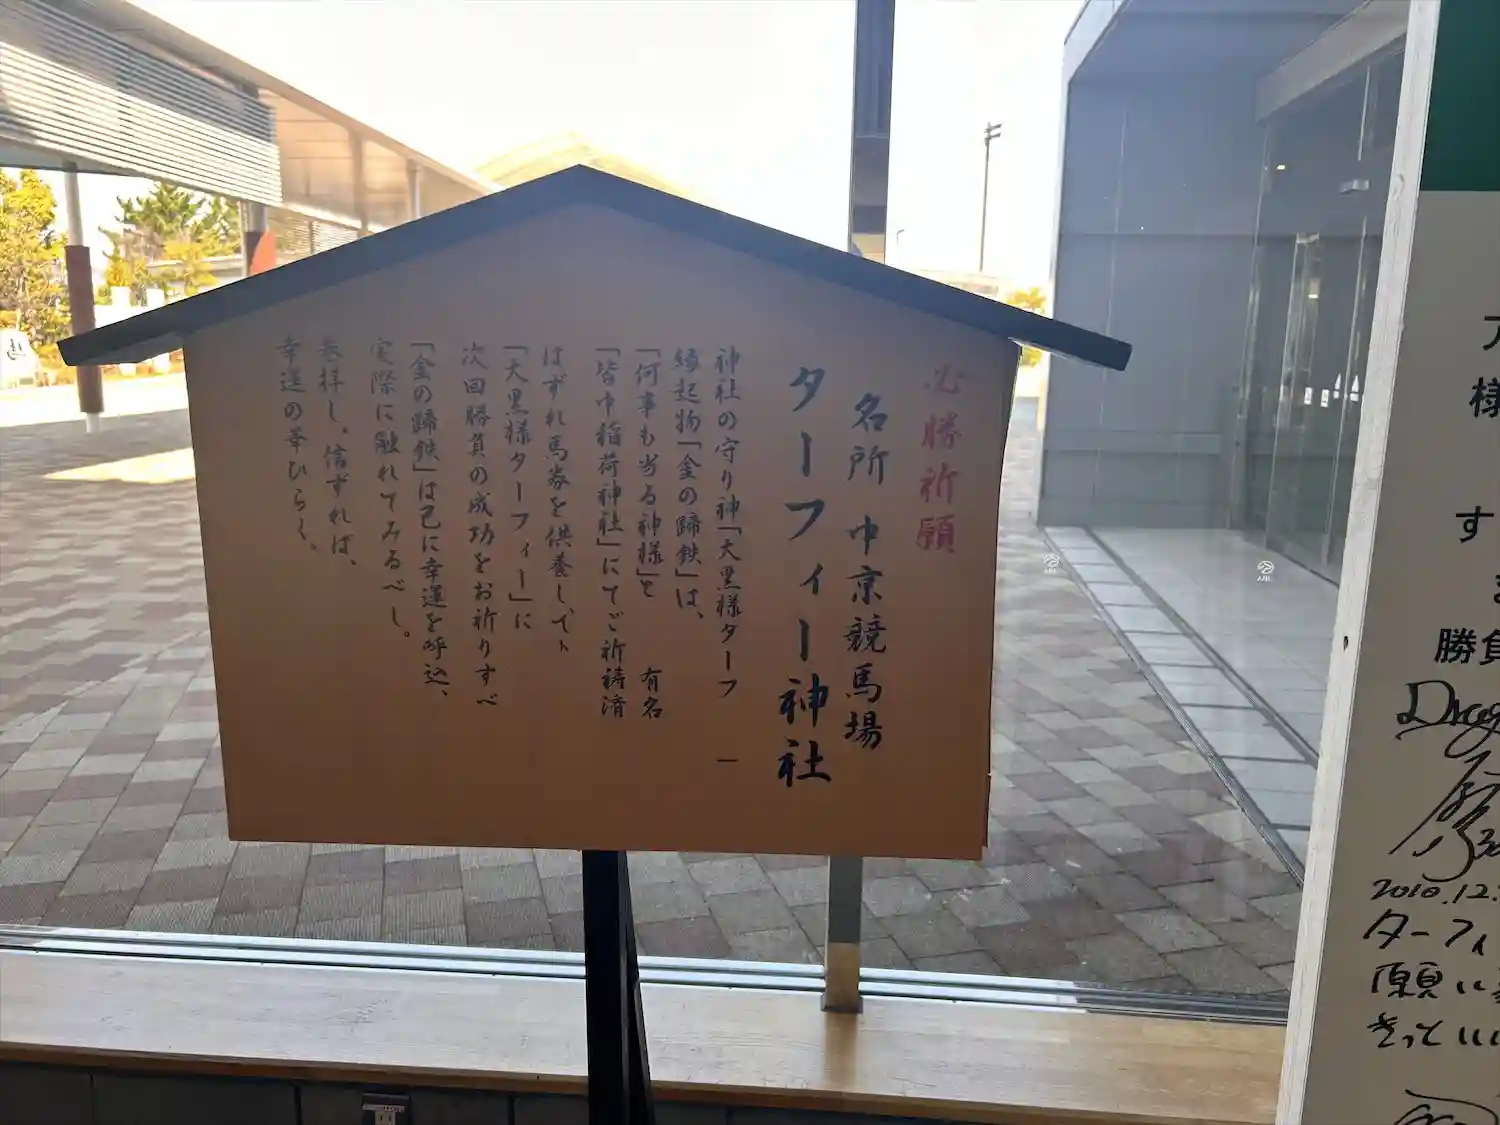 必勝祈願
名所 中京競馬場
ターフィー神社
神社の守り神「大黒様ターフ
ー
縁起物「金の蹄鉄」は、
「何事も当る神様」と 有名
「皆中稲荷神社」にてご祈祷済
はずれ馬券を供養して、
「大黒様ターフィー」に
次回勝負の成功をお祈りすべ
「金の蹄鉄」は己に幸運を呼込、
実際に触れてみるべし。
参拝し、信ずれば、
幸運の華ひらく。
様
す
勝負
2010.12.
ターフィ
願い
きっといい
馬